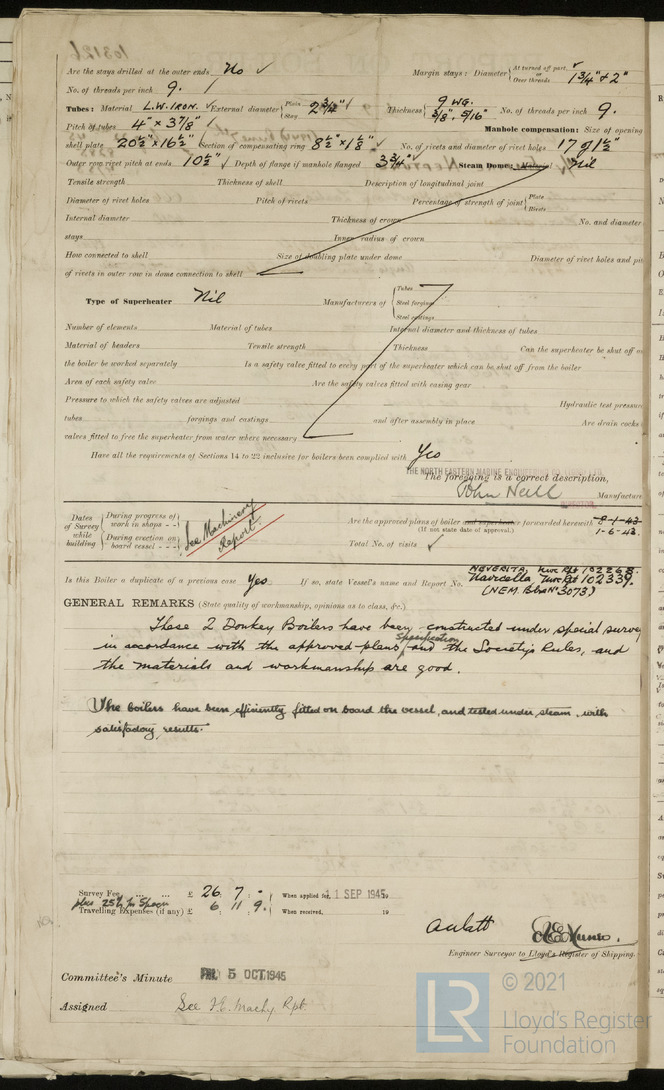 Are the stays drilled at the outer ends No ✓ Margin stays: Diameter { At turned off part, ✓ Over threads 1 3/4" & 2"
No. of threads per inch 9. /
Tubes: Material L.W. IRON. ✓ External diameter { Plain Stay 2 3/4" ✓ Thickness { 9 WG. 3/8", 5/16" No. of threads per inch 9.
Pitch of tubes 4" × 3 7/8" / Manhole compensation: Size of opening
shell plate 20 1/2" × 16 1/2" Section of compensating ring 8 1/2" × 1 1/8" ✓ No. of rivets and diameter of rivet holes 17 of 1 1/2"
Outer row rivet pitch at ends 10 1/2" ✓ Depth of flange if manhole flanged 3 3/4" ✓ Steam Dome: Material Nil
Tensile strength Thickness of shell Description of longitudinal joint
Diameter of rivet holes Pitch of rivets Percentage of strength of joint { Plate Rivets
Internal diameter Thickness of crown No. and diameter
stays Inner radius of crown
How connected to shell Size of doubling plate under dome Diameter of rivet holes and pi
of rivets in outer row in dome connection to shell
Type of Superheater Nil Manufacturers of { Tubes Steel forgings Steel castings
Number of elements Material of tubes Internal diameter and thickness of tubes
Material of headers Tensile strength Thickness Can the superheater be shut off a
the boiler be worked separately Is a safety valve fitted to every part of the superheater which can be shut off from the boiler
Area of each safety valve Are the safety valves fitted with easing gear
Pressure to which the safety valves are adjusted Hydraulic test pressure
tubes forgings and castings and after assembly in place Are drain cocks
valves fitted to free the superheater from water where necessary
Have all the requirements of Sections 14 to 22 inclusive for boilers been complied with Yes
THE NORTH EASTERN MARINE ENGINEERING CO.
The foregoing is a correct description,
John Neill Manufacture
Dates of Survey while building { During progress of work in shops - - During erection on board vessel - - - See Machinery Report. Are the approved plans of boiler and superheater forwarded herewith 8-1-43
(If not state date of approval.) 1-6-43.
Total No. of visits ✓
Is this Boiler a duplicate of a previous case Yes If so, state Vessel's name and Report No. NEVERITA, Nwc Rpt 102268.
Navicella, Nwc Rpt 102339.
(NEM. Blr No 3073)
GENERAL REMARKS (State quality of workmanship, opinions as to class, &c.)
These 2 Donkey Boilers have been constructed under special survey
in accordance with the approved plans, Specification and the Society's Rules, and
the materials and workmanship are good.
The boilers have been efficiently fitted on board the vessel, and tested under steam, with
satisfactory results.
Survey Fee ... ... £ 26 : 7 : - When applied for, 11 SEP 1945
plus 25%
Travelling Expenses (if any) £ 6 : 11 : 9. When received, 19
Engineer Surveyor to Lloyd's Register of Shipping.
Committee's Minute FRI. 5 OCT 1945
Assigned See F.E. Machy. Rpt.
LR © 2021
Lloyd's Register
Foundation